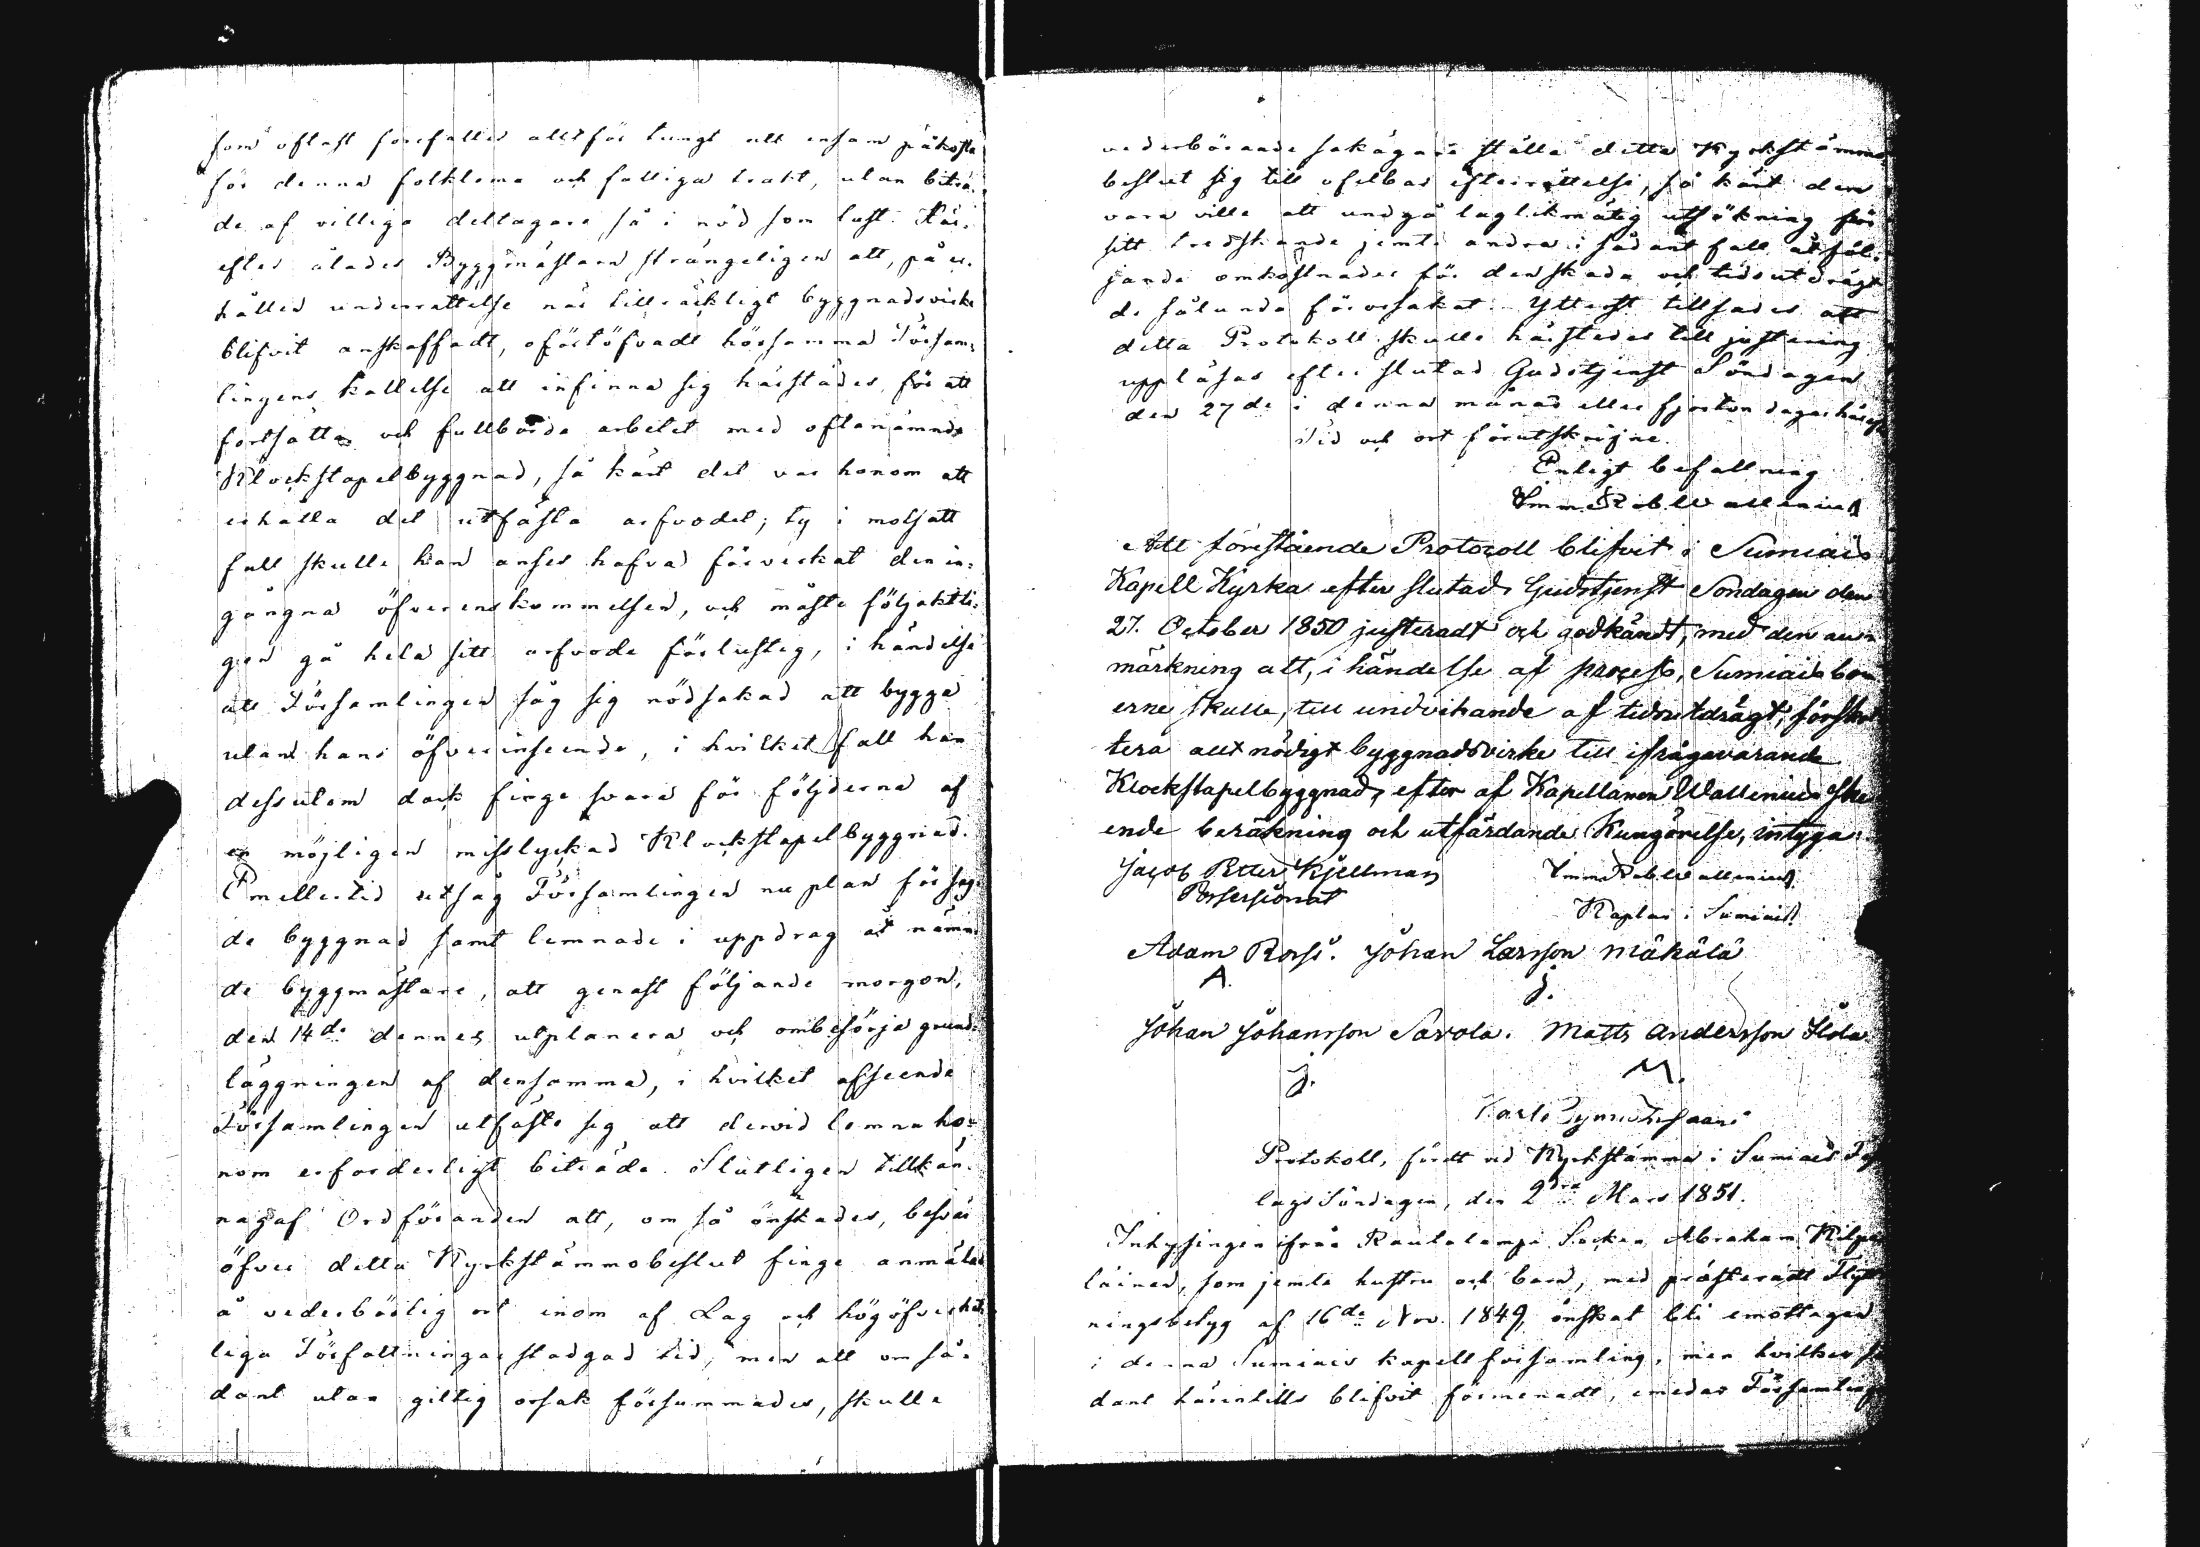 som oftast forefalles alltför tungt att ensam påkosta
för denna folktoma och fattiga trakt, utan biträ-
de af villiga deltagare så i nöd som lust. Här-
efter ålades Byggmästarn strängeligen att, på er-
hållen underrättelse när tillräckligt byggnadsvirke
blifvit anskaffadt, ofördröfvadt hörsamma Försam-
lingens kallelse att infinna sig härstädes för att
fortsätta och fullborda arbetet med oftanämnde
Klockstapelbyggnad, så kärt det var honom att
erhålla det utfästa arfvodet; ty i motsatt
fall skulle han anses hafva förverkat den in-
gångna öfverenskommelsen, och måste följaktli-
gen gå hela sitt arfvode förlustig, i händelse
att Församlingen såg sig nödsakad att bygga
utan hans öfverinseende, i hvilket fall han
dessutom dock finge svara för följderna af
en möjligen misslyckad Klockstapelbyggnad.
Emellertid utsåg Församlingen nu plan för sag-
de byggnad samt lemnade i uppdrag åt nämn-
de byggmästare, att genast följande morgon,
den 14de dennes utplanera och ombesörja grund-
läggningen af densamma, i hvilket afseende
Församlingen utfäste sig att dervid lemna ho-
nom erforderligt biträde. Slutligen tillkän-
nagaf Ordföranden att, om så önskades, besvär
öfver detta Kyrkstämmobeslut finge anmälas
å vederbörlig ort inom af Lag och högöfverhet-
liga Författningar stadgad tid; men att om så-
dant utan giltig orsak försummades, skulle
vederbörande sakägare ställa detta Kyrkstämmo-
beslut sig till ofelbar efterrättelse, så kärt dem
vara ville att undgå laglikmätig utsökning för
sitt tredskande jemte andra i sådant fall åtföl-
jande omkostnader för den skada och tidsutdrägt
de sålunda förorsakat. Ytterst tillsades att
detta Protokoll skulle härstedes till justering
uppläsas efter slutad Gudstjenst Söndagen
den 27de i denna månad eller fjorton dagar härefter
Tid och ort förutskrifne.
Enligt befallning
Imm: Rab: Wallenius
Att förestående Protocoll blifvit i Sumiais
Kapell Kyrka efter slutad Gudstjenst Söndagen den
27. October 1850 justeradt och godkändt, med den an-
märkning att, i händelse af process, Sumiais bön-
erne skulle, till undvikande af tidsutdrägt, förskot-
tera allt nödigt byggnadsvirke till ifrågavarande
Klockstapelbyggnad, efter af Kapellanen Wallenius ske-
ende beräkning och utfärdande Kungörelse, intyga:
Jacob Petter Kjellman Imm: Rab: Wallenius
Possessionat Kaplan i Sumiais
Adam Rossi. Johan Larsson Mäkälä
A. J.
Johan Johansson Savola. Matts Andersson
J. M.
Protokoll, fördt vid Kyrkstämma i Sumiais
lags Söndagen, den 2dra Mars 1851.
Inhysingen ifrån Rautalampi Socken Abraham
läinen, som jemte hustru och barn, med prästeradt Flytt-
ningsbetyg af 16de Nov. 1849, önskat bli emottagen
i denna Sumiais kapellförsamling, men hvilket så-
dant härintills blifvit förmenadt, emedan Församlingen